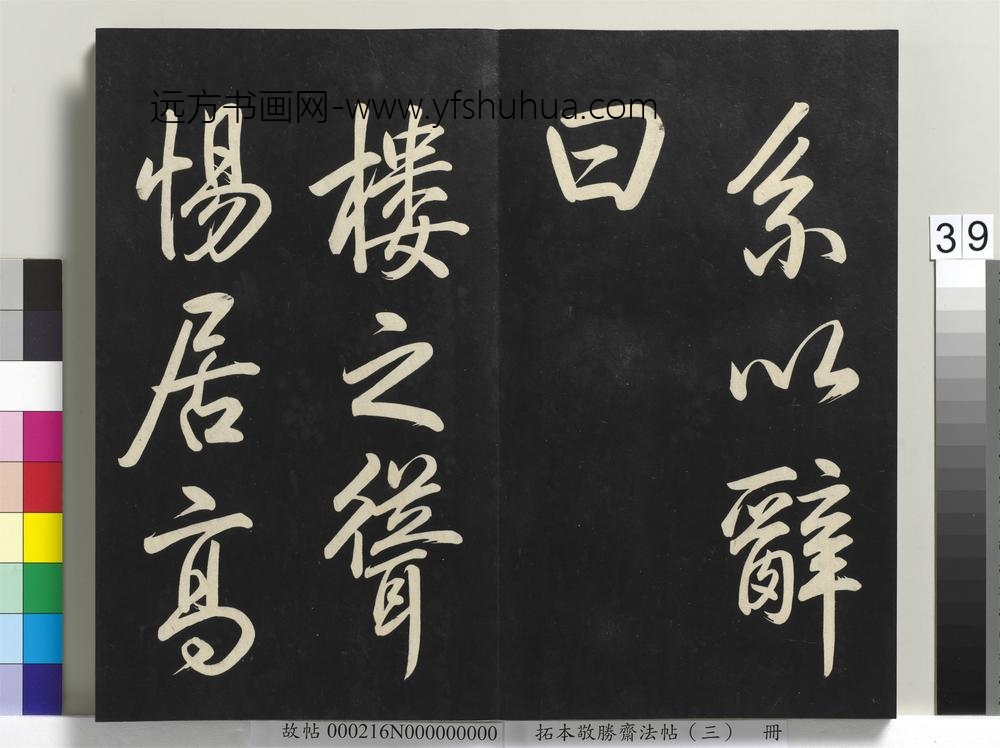 系以辭
曰
樓之聳
惕居高
远方书画网-www.yfshuhua.com
39
故帖 000216N000000000
拓本敬勝齋法帖（三） 冊